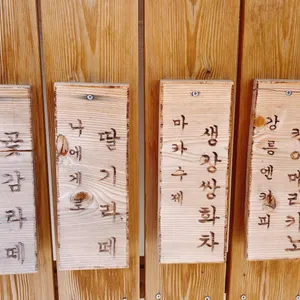 곶감라떼
나에게로
딸기라떼
마카수제
생강쌍화차
강릉엔커피
아메리카노